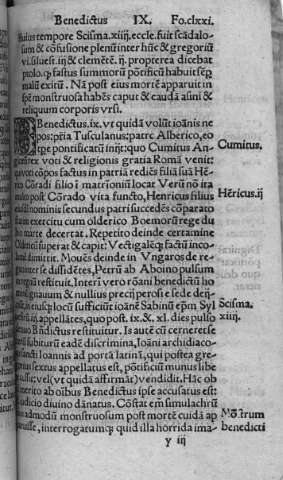 Benedictus IX. Fo.clxxi.
huius tempore Scisma.xiiij.eccle.fuit scādalo-
sum & cōfusione plenū inter hūc & gregoriū
vi.siluest.iij & clemētē.ij. propterea dicebat
ptolo.ꝙ fastus summorū pōtificū habuit semp
malū exitū. Nā post eius mortē apparuit in
spē monstruosa habēs caput & caudā asini &
reliquum corporis vrsi.
Benedictus.ix.vt quidā volūt ioānis ne
pos: patria Tusculanus: patre Alberico, eo
pe pontificatū inijt: quo Cumitus An-
rex voti & religionis gratia Romā venit:
voti cōpos factus in patriā rediēs filiā suā Hē-
Cōradi filio ī matrīoniū locat Verū nō ita
post Cōrado vita functo, Henricus filius
nominis secundus patri succedēs cōparato
exercitu cum olderico Boemorū rege du
marte decertat. Repetito deinde certamine
superat & capit: Vectigalēꝗ factū inco-
dimittit. Mouēs deinde in Vngaros de re-
inter se dissidētes, Petrū ab Aboino pulsum
restituit. Interi vero rōani benedictū ho
ignauum & nullius precij perose e sede deij-
in eius locū sufficiūt ioānē Sabinū epm Syl
iij. appellātes, quo post.ix.& xl. dies pulso
Bndictus restituitur. Is autē cū cerneret se
subiturū eadē discrimina, Ioāni archidiaco-
sancti Ioannis ad portā latinā, qui postea gre-
sextus appellatus est, pōtificiū munus libe
vel (vt quidā affirmāt) vendidit. Hāc ob
ab oībus Benedictus ipse accusatus est:
iudicio diuino dānatus. Cōstat em simulachrū
admodū monstruosum post mortē cuidā ap
interrogatumꝗ quid illa horrida ima-
y iij
Cumitus.
Hēricus.ij
Scisma.
xiiij.
Mōstrum
benedicti